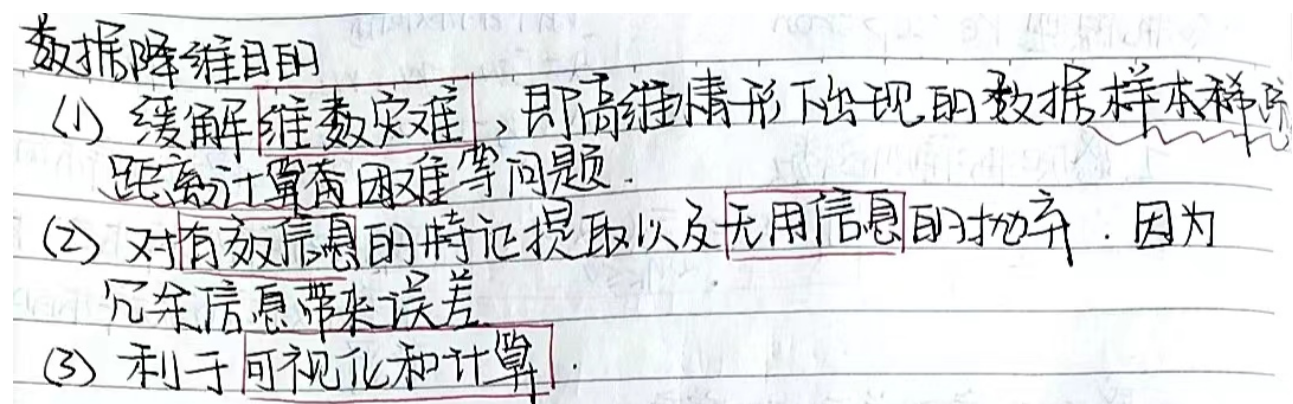 数据降维目的
(1) 缓解维数灾难，即高维情形下出现的数据样本稀疏
距离计算困难等问题.
(2) 对有效信息的特征提取以及无用信息的抛弃. 因为
冗余信息带来误差
(3) 利于可视化和计算.